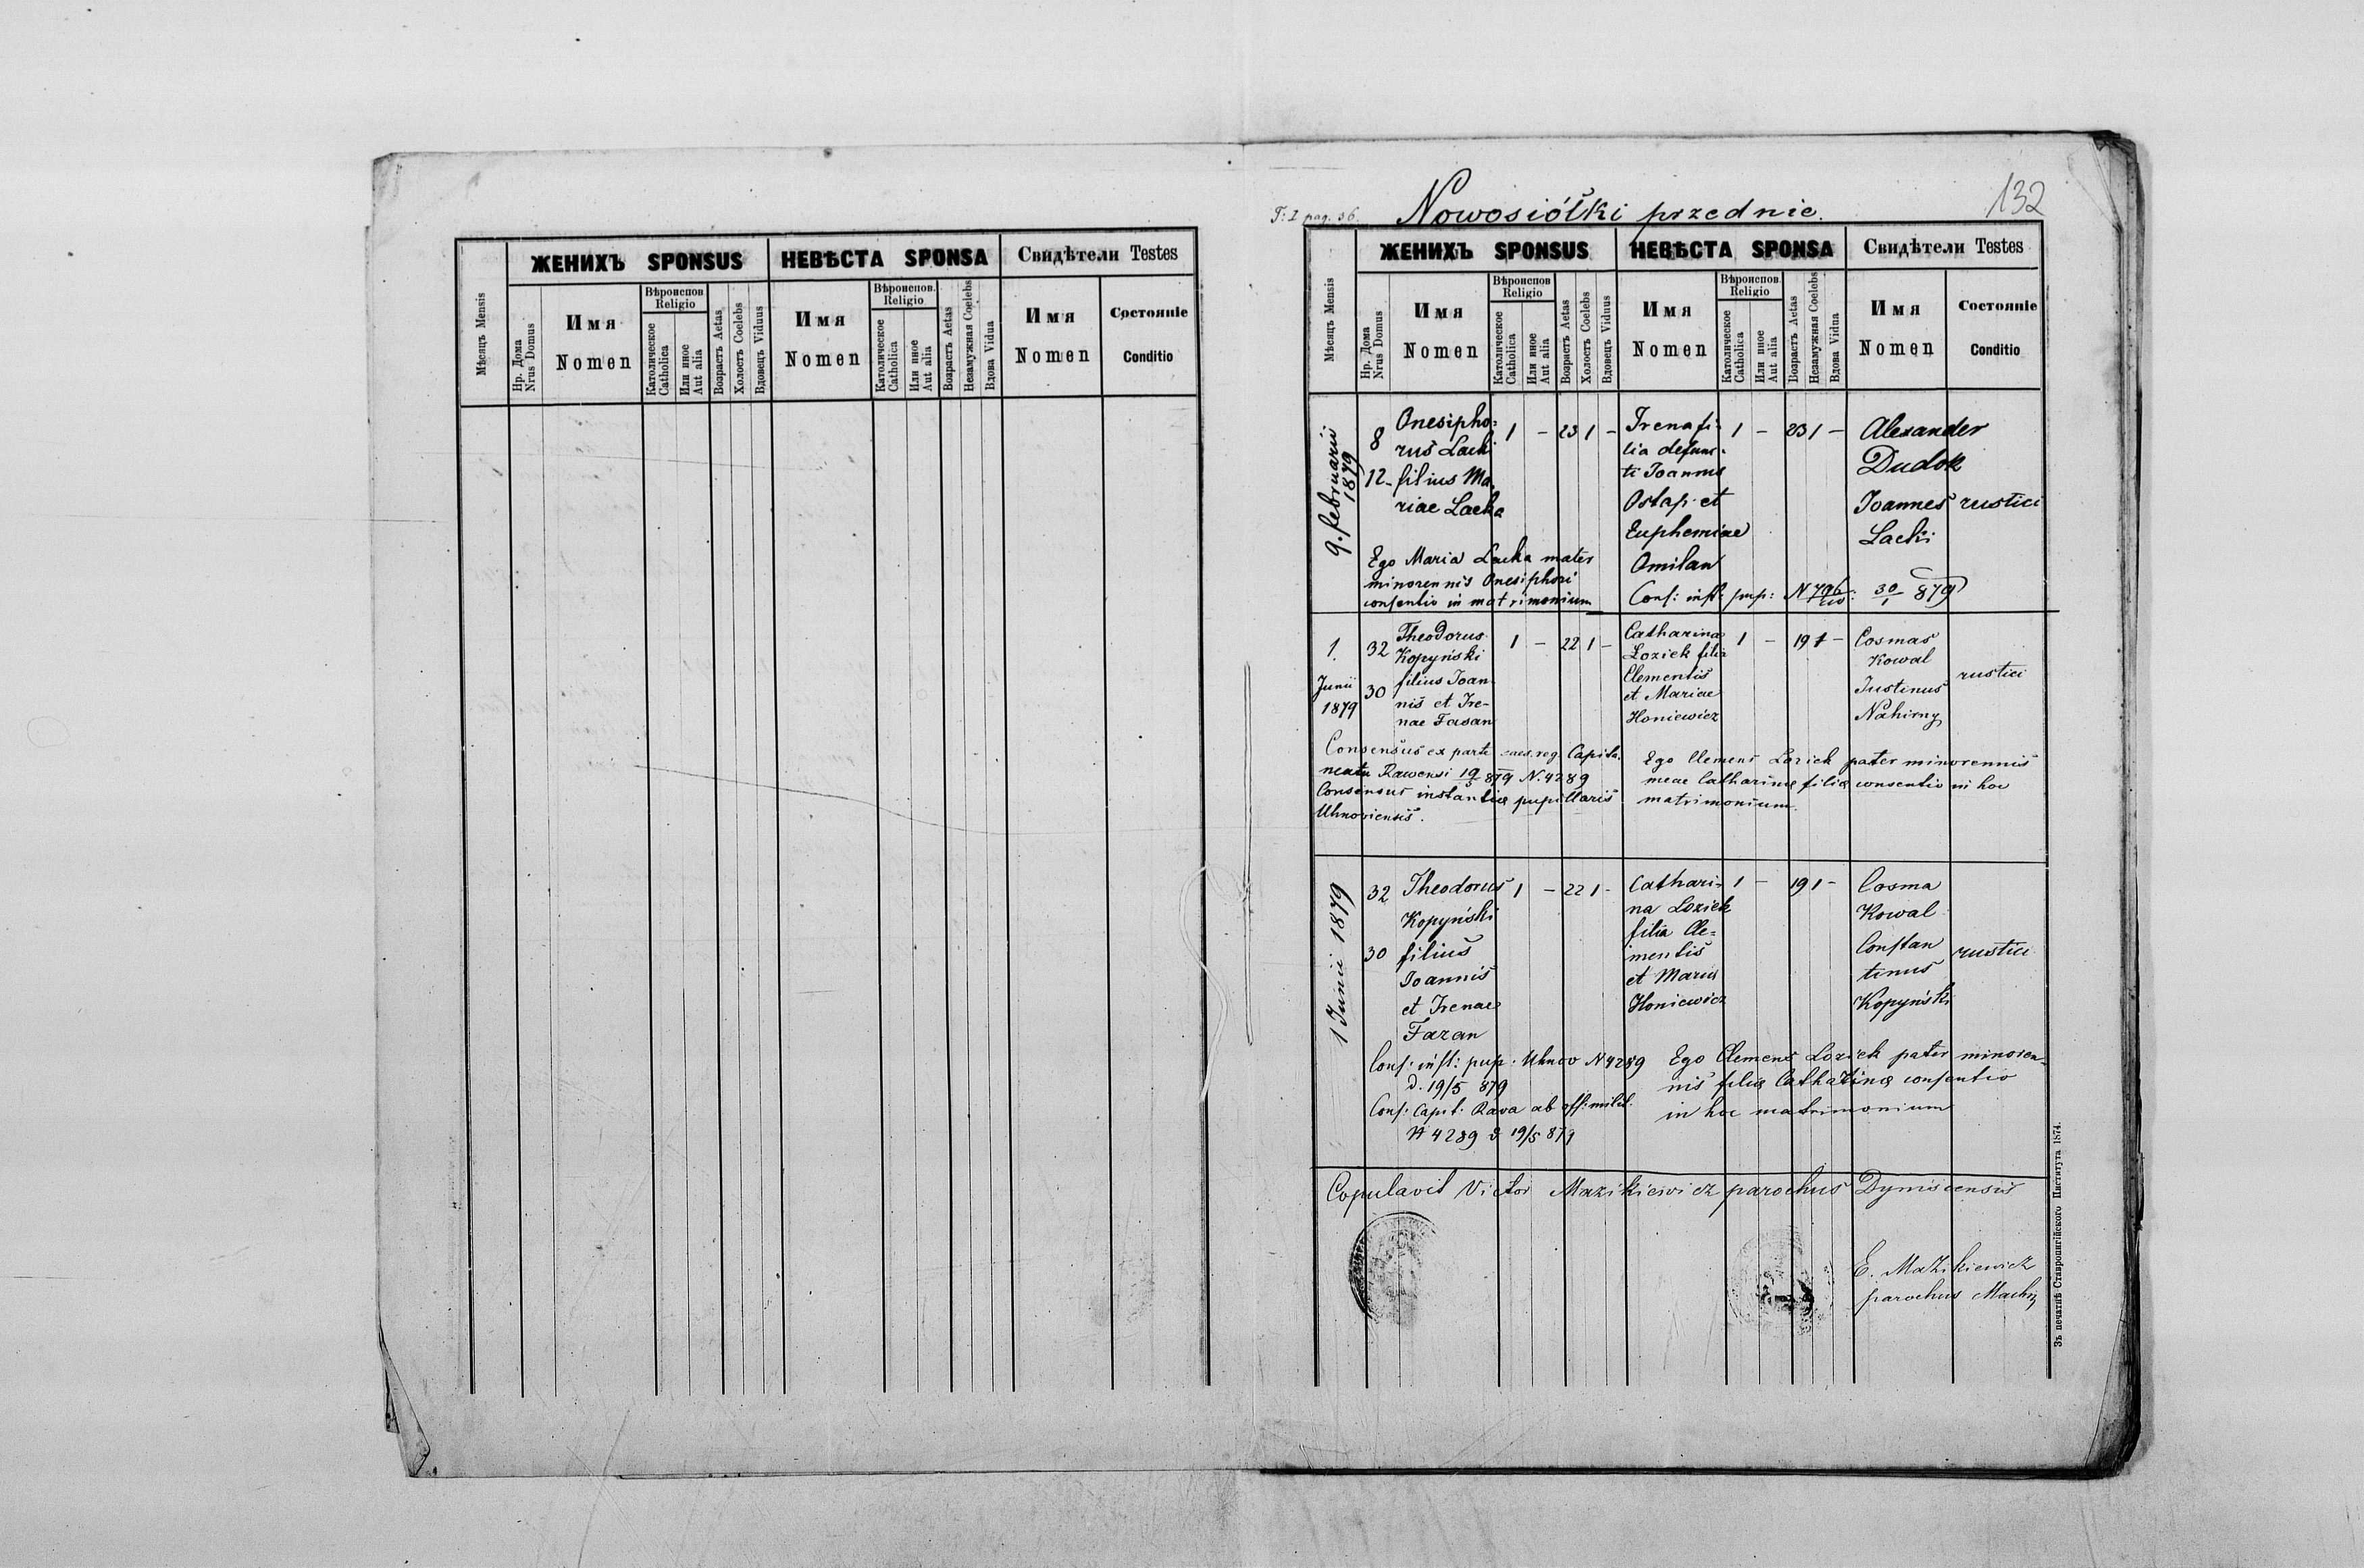 Мѣсяцъ Mensis
ЖЕНИХЪ SPONSUS
НЕВѢСТА SPONSA
Свидѣтели Testes
Нр. Дома
Nrus Domus
Имя
Nomen
Вѣроиспов.
Religio
Католическое
Catholica
Или иное
Aut alia
Возрастъ Aetas
Холостъ Coelebs
Вдовецъ Viduus
Имя
Nomen
Вѣроиспов.
Religio
Католическое
Catholica
Или иное
Aut alia
Возрастъ Aetas
Незамужная Coelebs
Вдова Vidua
Имя
Nomen
Состояніе
Conditio
T: I pag. 36.
Nowosiółki przednie.
132
Мѣсяцъ Mensis
ЖЕНИХЪ SPONSUS
НЕВѢСТА SPONSA
Свидѣтели Testes
Нр. Дома
Nrus Domus
Имя
Nomen
Вѣроиспов
Religio
Католическое
Catholica
Или иное
Aut alia
Возрастъ Aetas
Холостъ Coelebs
Вдовецъ Viduus
Имя
Nomen
Вѣроиспов.
Religio
Католическое
Catholica
Или иное
Aut alia
Возрастъ Aetas
Незамужная Coelebs
Вдова Vidua
Имя
Nomen
Состояніе
Conditio
9. februarii
1879
8
12
Onesipho=
rus Lacki
filius Ma
riae Lacka
1 – 23 1 –
Irena fi
lia defunc
ti Joannis
Ostap et
Euphemiae
Omilan
1 – 23 1 –
Alexander
Dudok
Joannes rustici
Lacki
Ego Maria Lacka mater
minorennis Onesiphori
consentio in matrimonium
Cons: inst: pup: N 796 30/1 879
1.
Junii
1879
32
30
Theodorus
Kopyński
filius Joan
nis et Ire-
nae Fasan
1 – 22 1 –
Catharina
Loziek filia
Clementis
et Mariae
Honiewicz
1 – 19 1 –
Cosmas
Kowal
Justinus
Nahirny
rustici
Consensus ex parte caes. reg. Capita.
neatu Rawensi 19/5 879 N. 4289
Consensus instantiae pupillaris
Uhnoviensis.
Ego Clemens Loziek pater minorennis
meae Catharinae filiae consentio in hoc
matrimonium.
1 Junii 1879
32
30
Theodorus
Kopyński
filius
Joannis
et Irenae
Fazan
1 – 22 1 –
Cathari=
na Loziek
filia Cle=
mentis
et Maria
Honiewicz
1 – 19 1 –
Cosma
Kowal
Constan
tinus
Kopyński
rustici
Cons: inst: pup. Uhnov N 4289
d. 19/5 879
Cons: Capit: Rava ab off: milit.
N 4289 d 19/5 879
Ego Clemens Loziek pater minoren=
nis filiae Catharinae consentio
in hoc matrimonium
Copulavit Victor Mazikiewicz parochus Dyniscensis
E. Mazikiewicz
parochus Machn
Зъ печатнѣ Ставропигійского Института 1874.